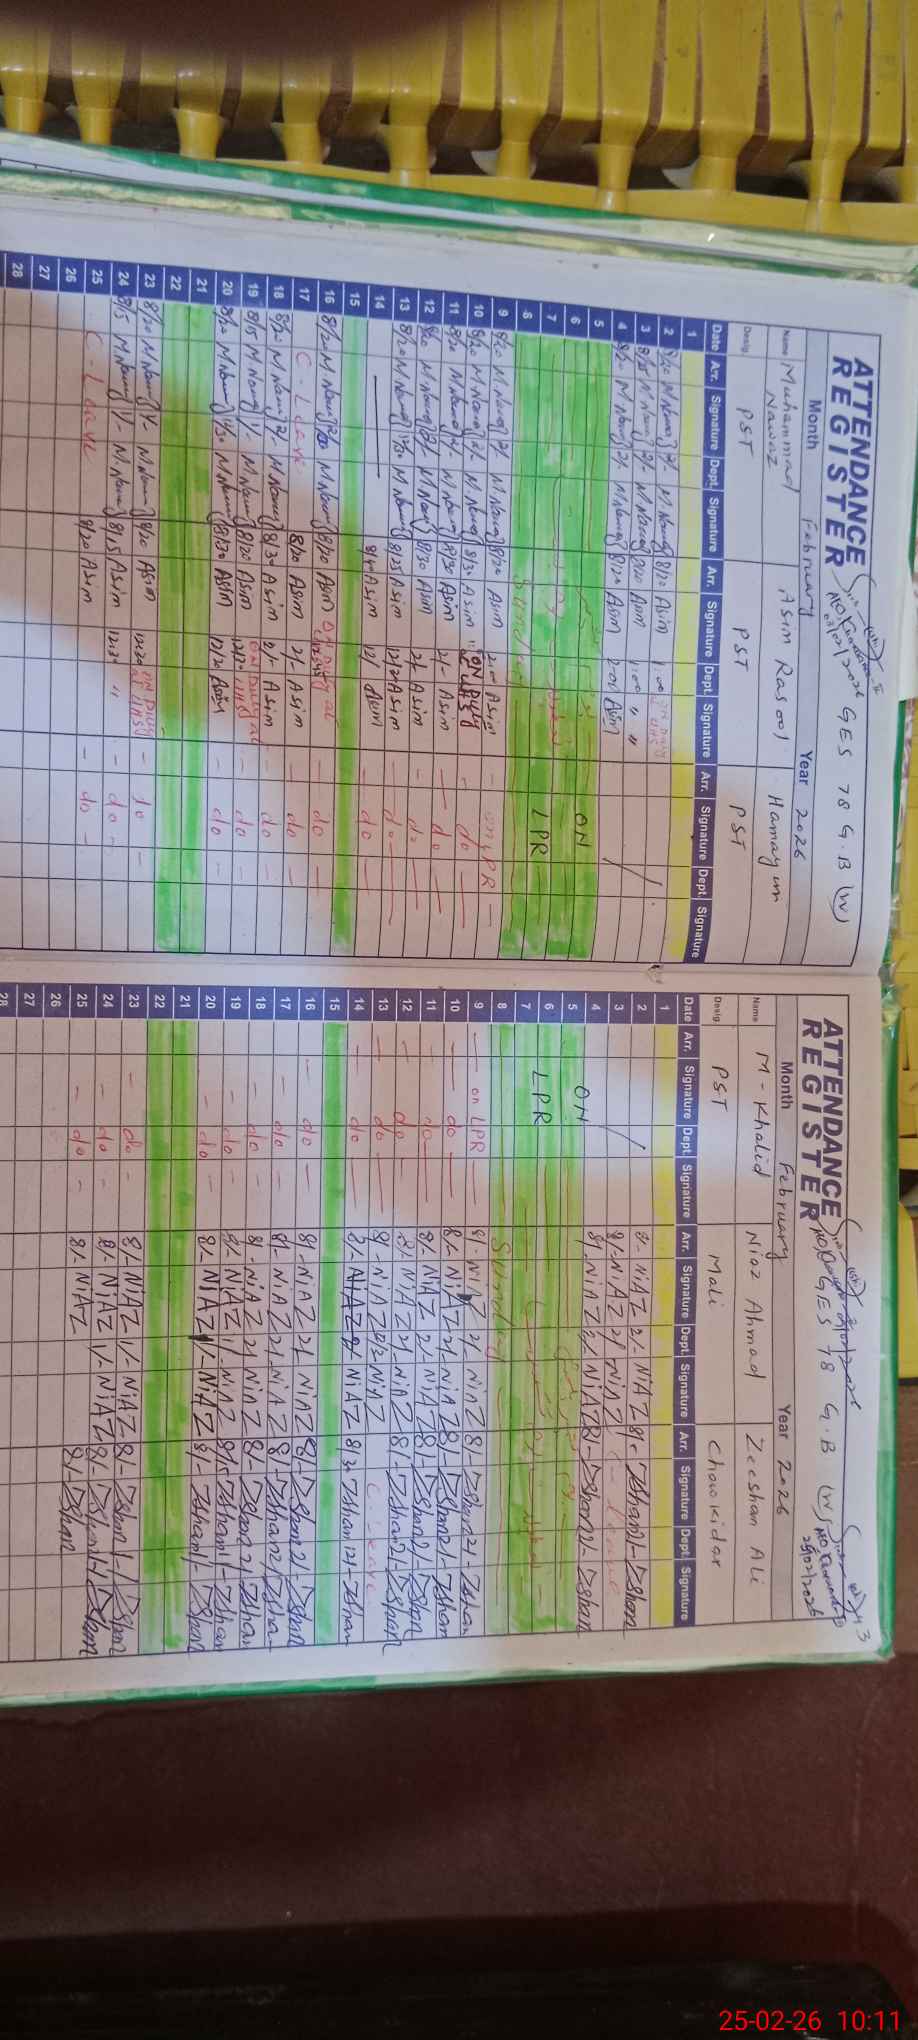 ATTENDANCE REGISTER
GES 78 G.B (W)
Month February Year 2026
Name Muhammad Nawaz Asim Rasool Hamayun
Desig: PST PST PST
Date Arr. Signature Dept. Signature Arr. Signature Dept. Signature Arr. Signature Dept. Signature
1
2 8/20 M Nawaz 2/- M Nawaz 8/20 Asim 1:00
3 8/15 M Nawaz 2/- M Nawaz 8/20 Asim 1:00 "
4 8/20 M Nawaz 2/- M Nawaz 8/20 Asim 2:00 Asim
5
6 ON
7
8 Sunday LPR
9 8/20 M Nawaz 2/- M Nawaz 8/20 Asim 2:00 Asim - on LPR -
10 8/20 M Nawaz 2/- M Nawaz 8/30 Asim ON Duty - do -
11 8/20 M Nawaz 2/- M Nawaz 8/30 Asim 2/- Asim - do -
12 8/20 M Nawaz 2/- M Nawaz 8/30 Asim 2/- Asim - do -
13 8/20 M Nawaz 12/30 M Nawaz 8/25 Asim 12/2 Asim - do -
14 Asim 12/ Asim - do -
15
16 8/20 M Nawaz M Nawaz 8/20 Asim ON Duty at - do -
17 C - Leave 8/20 Asim 2/- Asim - do -
18 8/20 M Nawaz 2/- M Nawaz 8/30 Asim 2/- Asim - do -
19 8/15 M Nawaz 1/- M Nawaz 8/20 Asim ON Duty at - do -
20 8/20 M Nawaz M Nawaz 8/30 Asim 12/20 Asim - do -
21
22
23 8/20 M Nawaz 1/- M Nawaz 8/20 Asim 12:30 ON Duty - do -
24 8/15 M Nawaz 1/- M Nawaz 8/15 Asim 12:30 " - do -
25 C - Leave 8/20 Asim - do -
26
27
28
ATTENDANCE REGISTER
GES 78 G.B (W)
3
Month February Year 2026
Name M - Khalid Niaz Ahmad Zeeshan Ali
Desig: PST Mali Chowkidar
Date Arr. Signature Dept. Signature Arr. Signature Dept. Signature Arr. Signature Dept. Signature
1
2 8/- NiAZ 2/- NiAZ 8/- Zshan 1/- Zshan
3 8/- NiAZ 2/- NiAZ C - Leave
4 8/- NiAZ 2/- NiAZ 8/- Zshan 2/- Zshan
5 ON
6
7 LPR
8 Sunday
9 - on LPR - 8/- NiAZ 2/- NiAZ 8/- Zshan 2/- Zshan
10 - do - 8/- NiAZ 2/- NiAZ 8/- Zshan 2/- Zshan
11 - do - 8/- NiAZ 2/- NiAZ 8/- Zshan 2/- Zshan
12 - do - 8/- NiAZ 2/- NiAZ 8/- Zshan 2/- Zshan
13 - do - 8/- NiAZ NiAZ C - Leave
14 - do - 8/- NiAZ NiAZ 8/30 Zshan 12/- Zshan
15
16 - do - 8/- NiAZ 2/- NiAZ 8/- Zshan 2/- Zshan
17 - do - 8/- NiAZ 2/- NiAZ 8/- Zshan 2/- Zshan
18 - do - 8/- NiAZ 2/- NiAZ 8/- Zshan 2/- Zshan
19 - do - 8/- NiAZ 1/- NiAZ 8/15 Zshan 1/- Zshan
20 - do - 8/- NiAZ 1/- NiAZ 8/- Zshan 1/- Zshan
21
22
23 - do - 8/- NiAZ 1/- NiAZ 8/- Zshan 1/- Zshan
24 - do - 8/- NiAZ 1/- NiAZ 8/- Zshan 1/- Zshan
25 - do - 8/- NiAZ 8/- Zshan
26
27
28
25-02-26 10:11